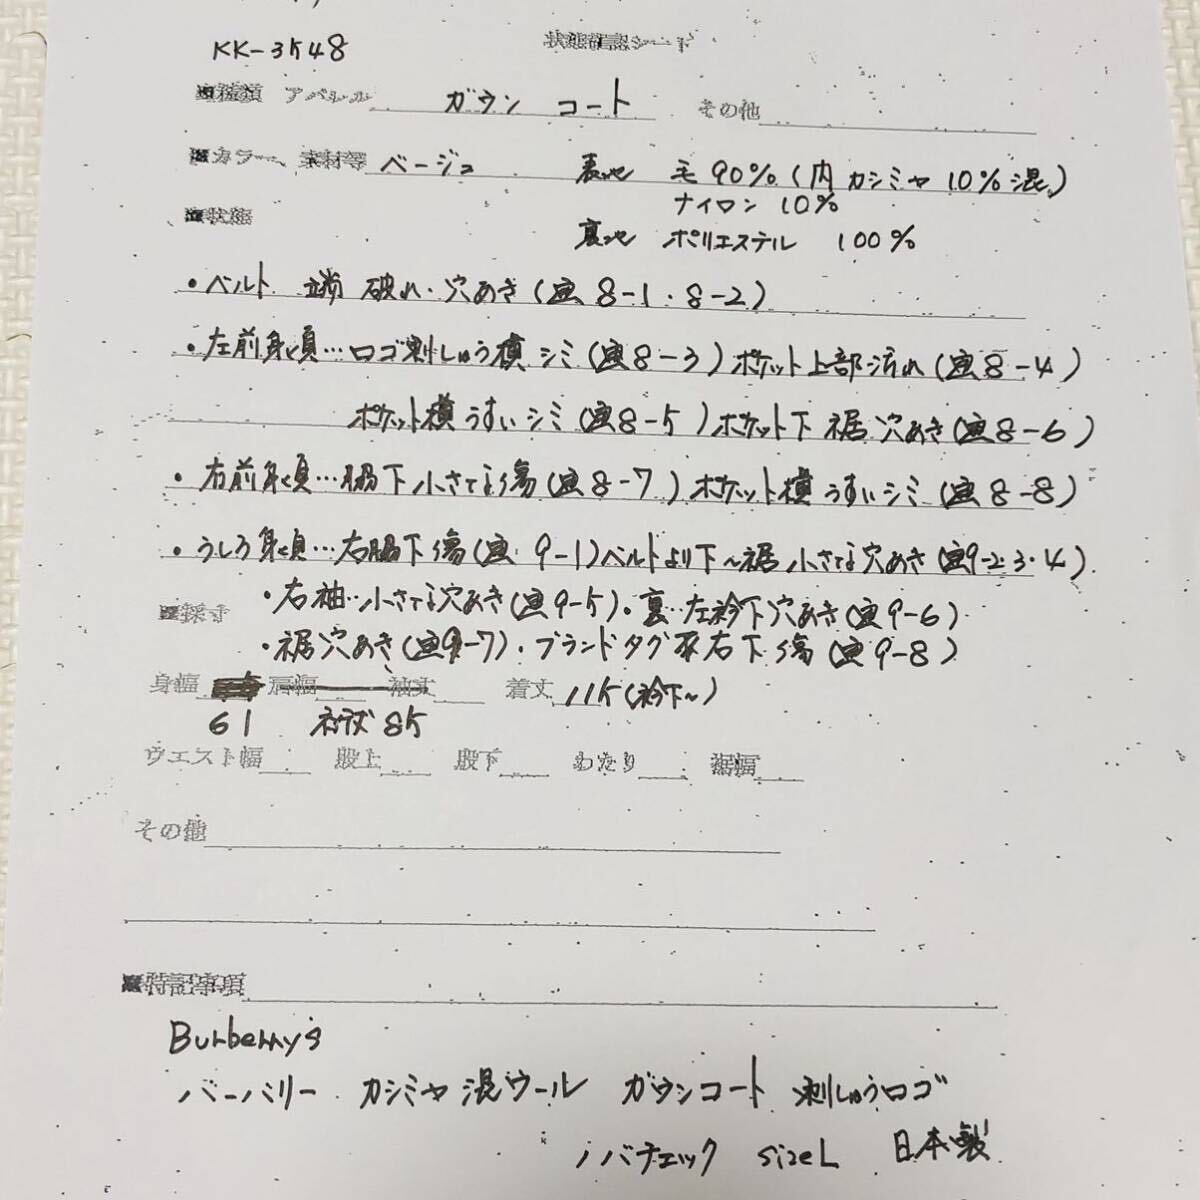 KK-3548 状態確認シート
■種類 アパレル ガウン コート その他
■カラー、素材等 ベージュ 表地 毛90%(内カシミヤ10%混)
ナイロン10%
■状態 裏地 ポリエステル 100%
・ベルト 端 破れ・穴あき(画8-1・8-2)
・左前身頃…ロゴ刺しゅう横シミ(画8-3)ポケット上部汚れ(画8-4)
ポケット横うすいシミ(画8-5)ポケット下裾穴あき(画8-6)
・右前身頃…脇下小さな傷(画8-7)ポケット横うすいシミ(画8-8)
・うしろ身頃…右脇下傷(画9-1)ベルトより下~裾小さな穴あき(画9-2・3・4)
・右袖…小さな穴あき(画9-5)・裏…左衿下穴あき(画9-6)
■採寸
・裾穴あき(画9-7)・ブランドタグ 右下傷(画9-8)
身幅 肩幅 袖丈 着丈 115(衿下~)
61 85
ウエスト幅 股上 股下 わたり 裾幅
その他
■特記事項
Burberrys
バーバリー カシミヤ混ウール ガウンコート 刺しゅうロゴ
ノバチェック sizeL 日本製